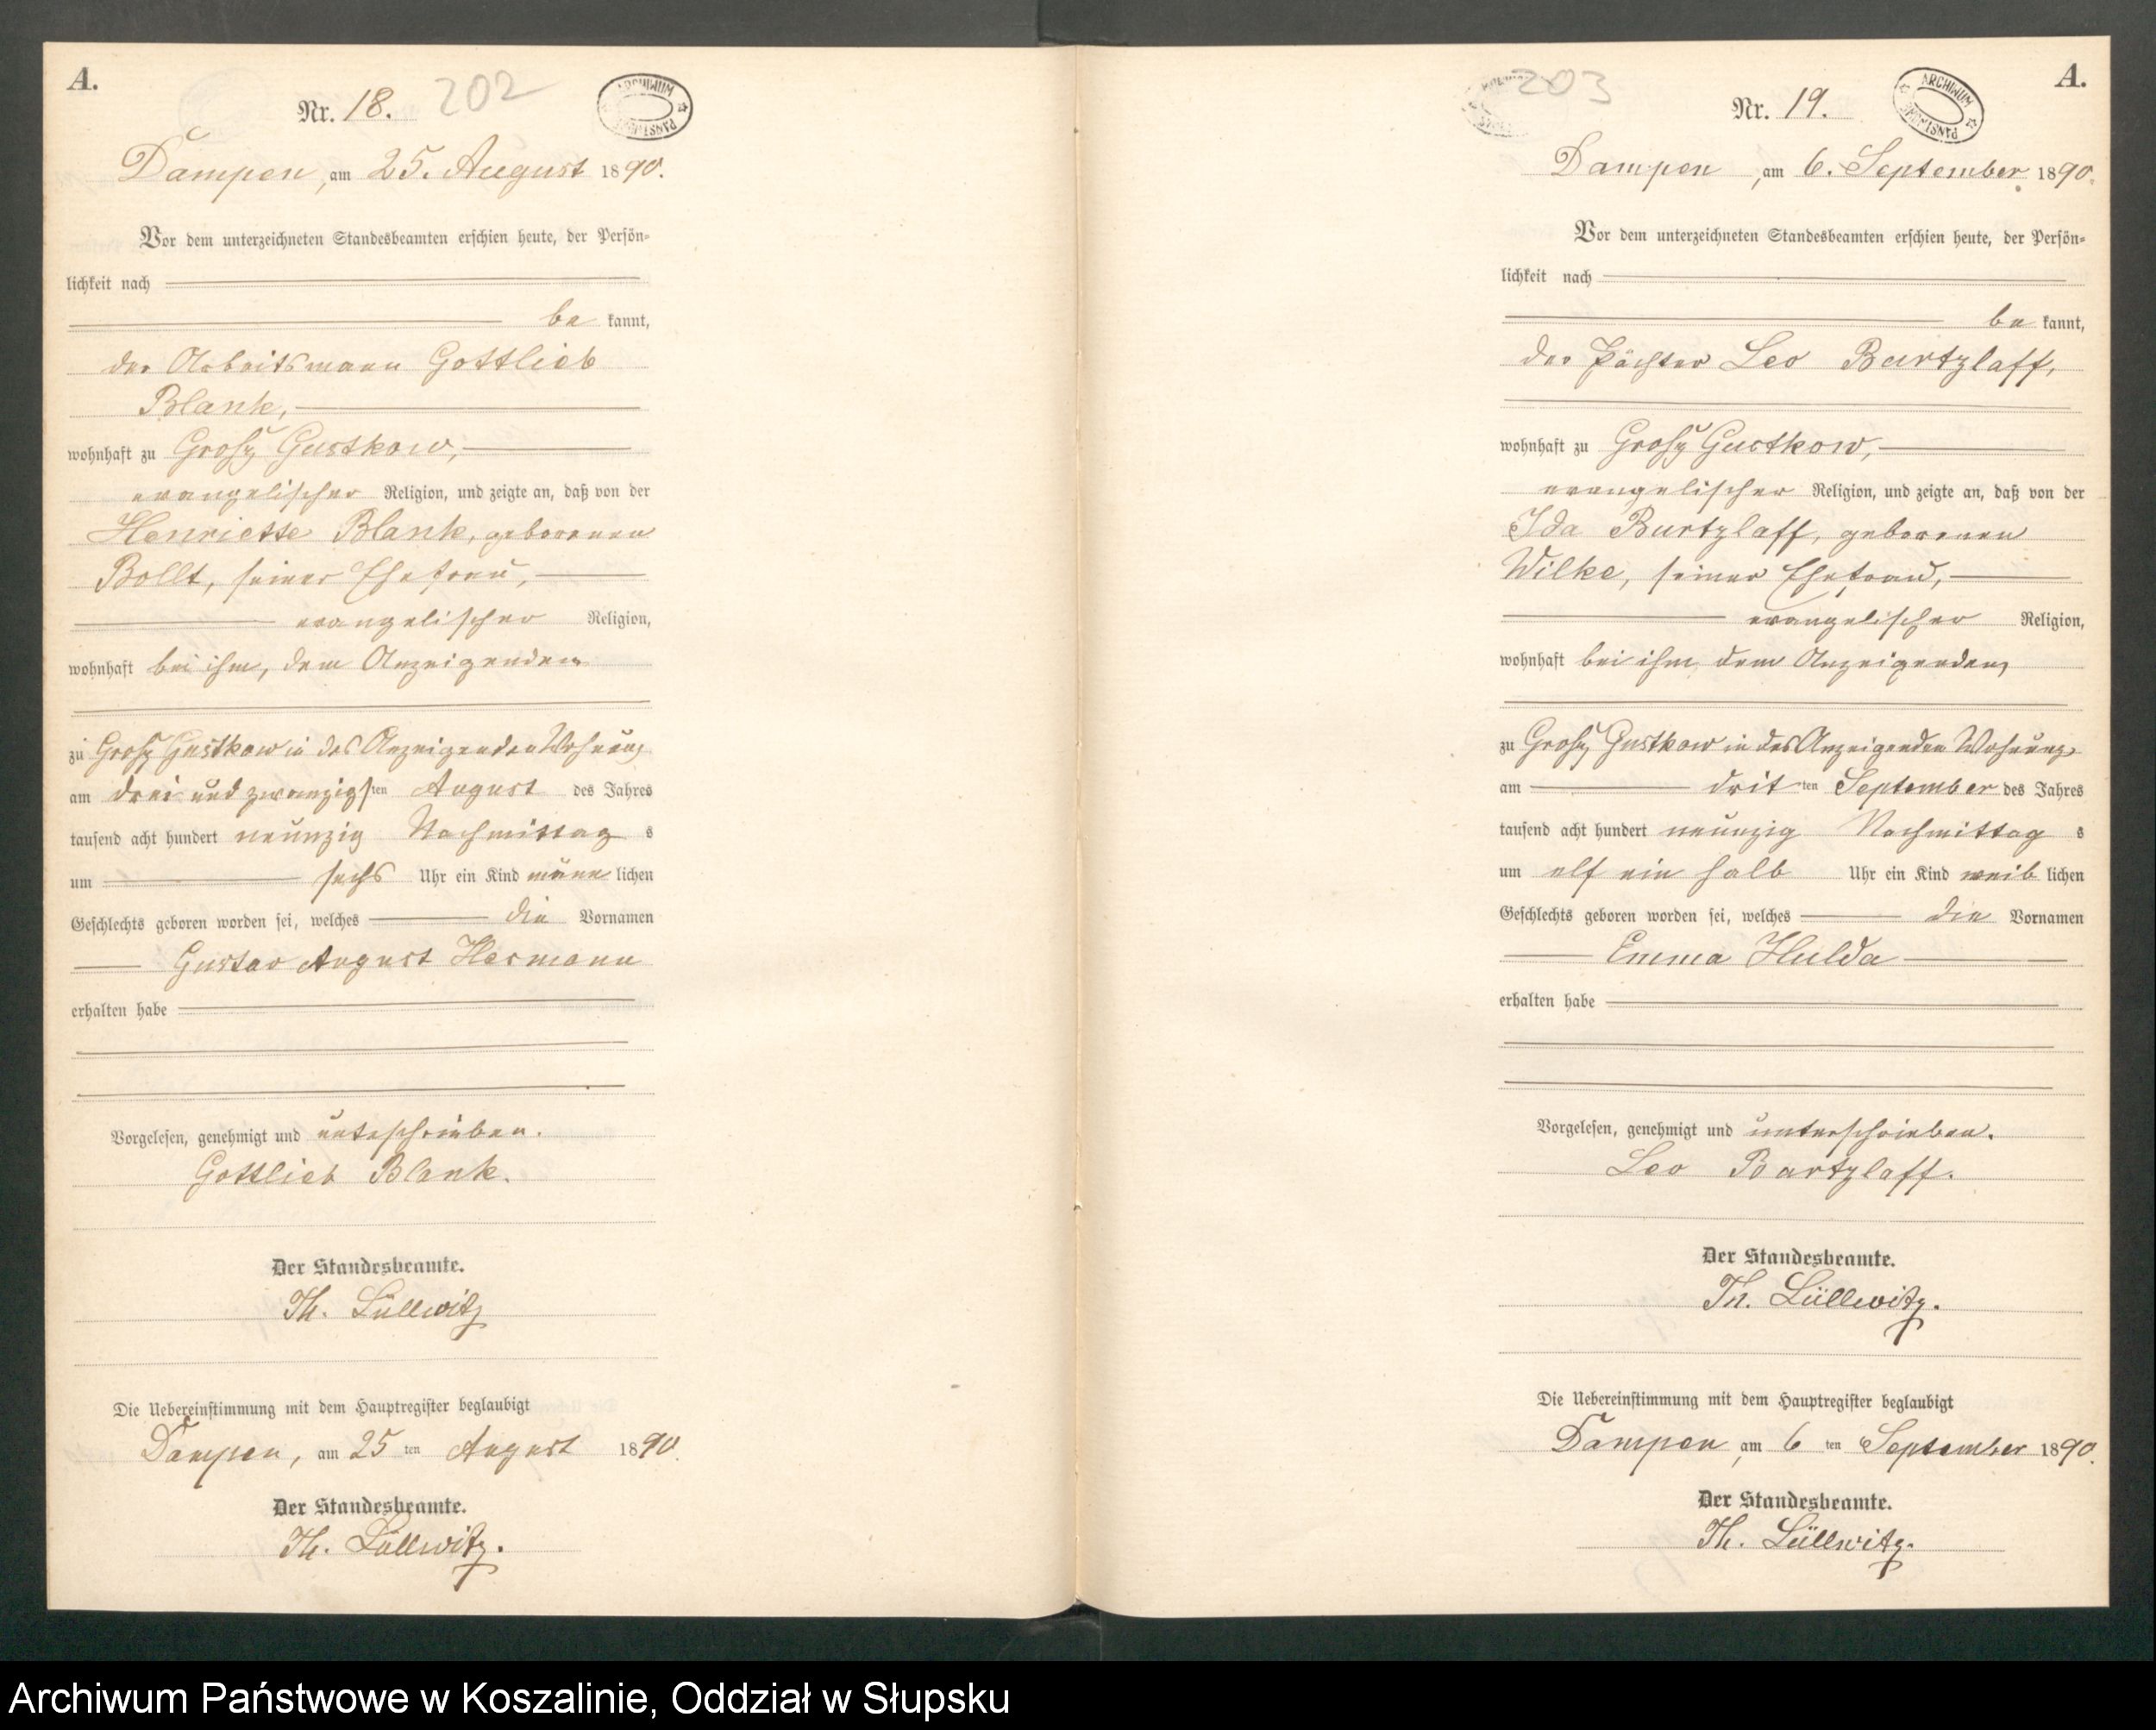 A.
Nr. 18. 202
ARCHIWUM PAŃSTWOWE
Dampen, am 25. August 1890.
Vor dem unterzeichneten Standesbeamten erschien heute, der Persön-
lichkeit nach
be kannt,
der Arbeitsmann Gottlieb
Blank,
wohnhaft zu Groß Gustkow,
evangelischer Religion, und zeigte an, daß von der
Henriette Blank, geborenen
Bollt, seiner Ehefrau,
evangelischer Religion,
wohnhaft bei ihm, dem Anzeigenden
zu Groß Gustkow in des Anzeigenden Wohnung
am drei und zwanzigsten August des Jahres
tausend acht hundert neunzig Nachmittag s
um sechs Uhr ein Kind männ lichen
Geschlechts geboren worden sei, welches die Vornamen
Gustav August Hermann
erhalten habe
Vorgelesen, genehmigt und unteschrieben.
Gottlieb Blank.
Der Standesbeamte.
Th. Lüllwitz
Die Uebereinstimmung mit dem Hauptregister beglaubigt
Dampen, am 25 ten August 1890.
Der Standesbeamte.
Th. Lüllwitz.
A.
203
Nr. 19.
ARCHIWUM PAŃSTWOWE
Dampen, am 6. September 1890.
Vor dem unterzeichneten Standesbeamten erschien heute, der Persön-
lichkeit nach
be kannt,
der Pächter Leo Bartzlaff,
wohnhaft zu Groß Gustkow,
evangelischer Religion, und zeigte an, daß von der
Ida Bartzlaff, geborenen
Wilke, seiner Ehefrau,
evangelischer Religion,
wohnhaft bei ihm, dem Anzeigenden,
zu Groß Gustkow in des Anzeigenden Wohnung
am drit ten September des Jahres
tausend acht hundert neunzig Nachmittag s
um elf ein halb Uhr ein Kind weib lichen
Geschlechts geboren worden sei, welches die Vornamen
Emma Hulda
erhalten habe
Vorgelesen, genehmigt und unterschrieben.
Leo Bartzlaff.
Der Standesbeamte.
Th. Lüllwitz.
Die Uebereinstimmung mit dem Hauptregister beglaubigt
Dampen, am 6 ten September 1890.
Der Standesbeamte.
Th. Lüllwitz.
Archiwum Państwowe w Koszalinie, Oddział w Słupsku